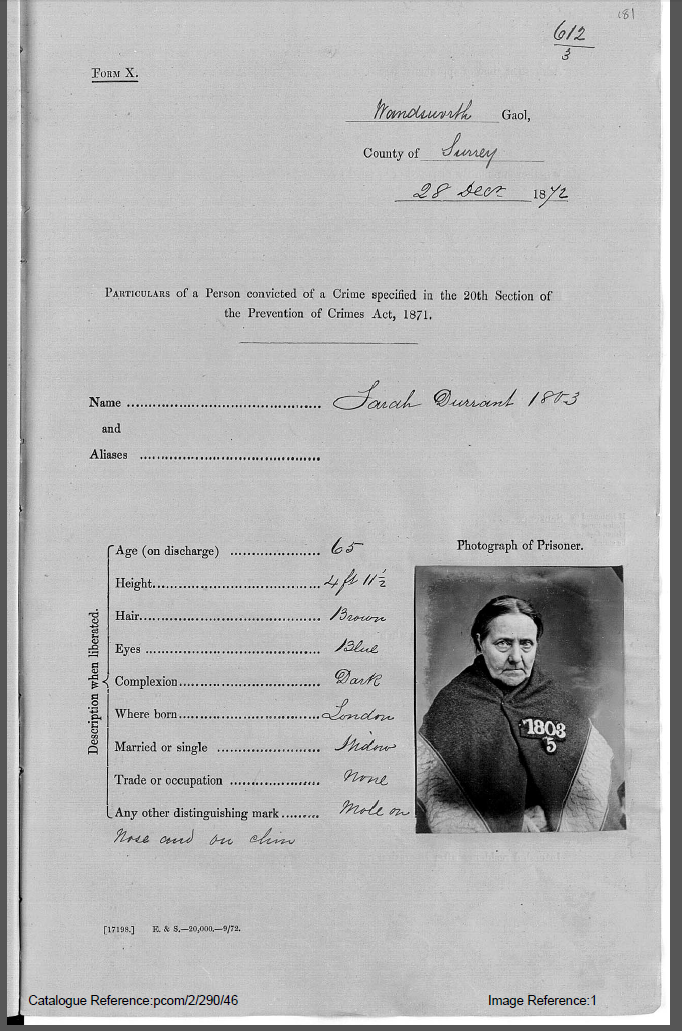 181
612
3
FORM X.
Wandsworth Gaol,
County of Surrey
28 Decr 1872
PARTICULARS of a Person convicted of a Crime specified in the 20th Section of
the Prevention of Crimes Act, 1871.
Name ........................................... Sarah Durrant 1803
and
Aliases ........................................
Age (on discharge) ..................... 65
Height....................................... 4 ft 11 ½
Hair.......................................... Brown
Eyes ........................................ Blue
Complexion................................. Dark
Where born................................. London
Married or single ........................ Widow
Trade or occupation ..................... None
Any other distinguishing mark......... Mole on
Nose and on chin
Description when liberated.
Photograph of Prisoner.
1803
5
[17198.] E. & S.—20,000.—9/72.
Catalogue Reference:pcom/2/290/46 Image Reference:1